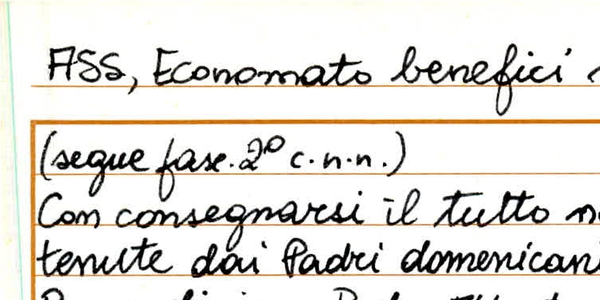 ASS, Economato benefici
(segue fasc. 2° c.n.n.)
Con consegnarsi il tutto
tenute dai Padri domenicani